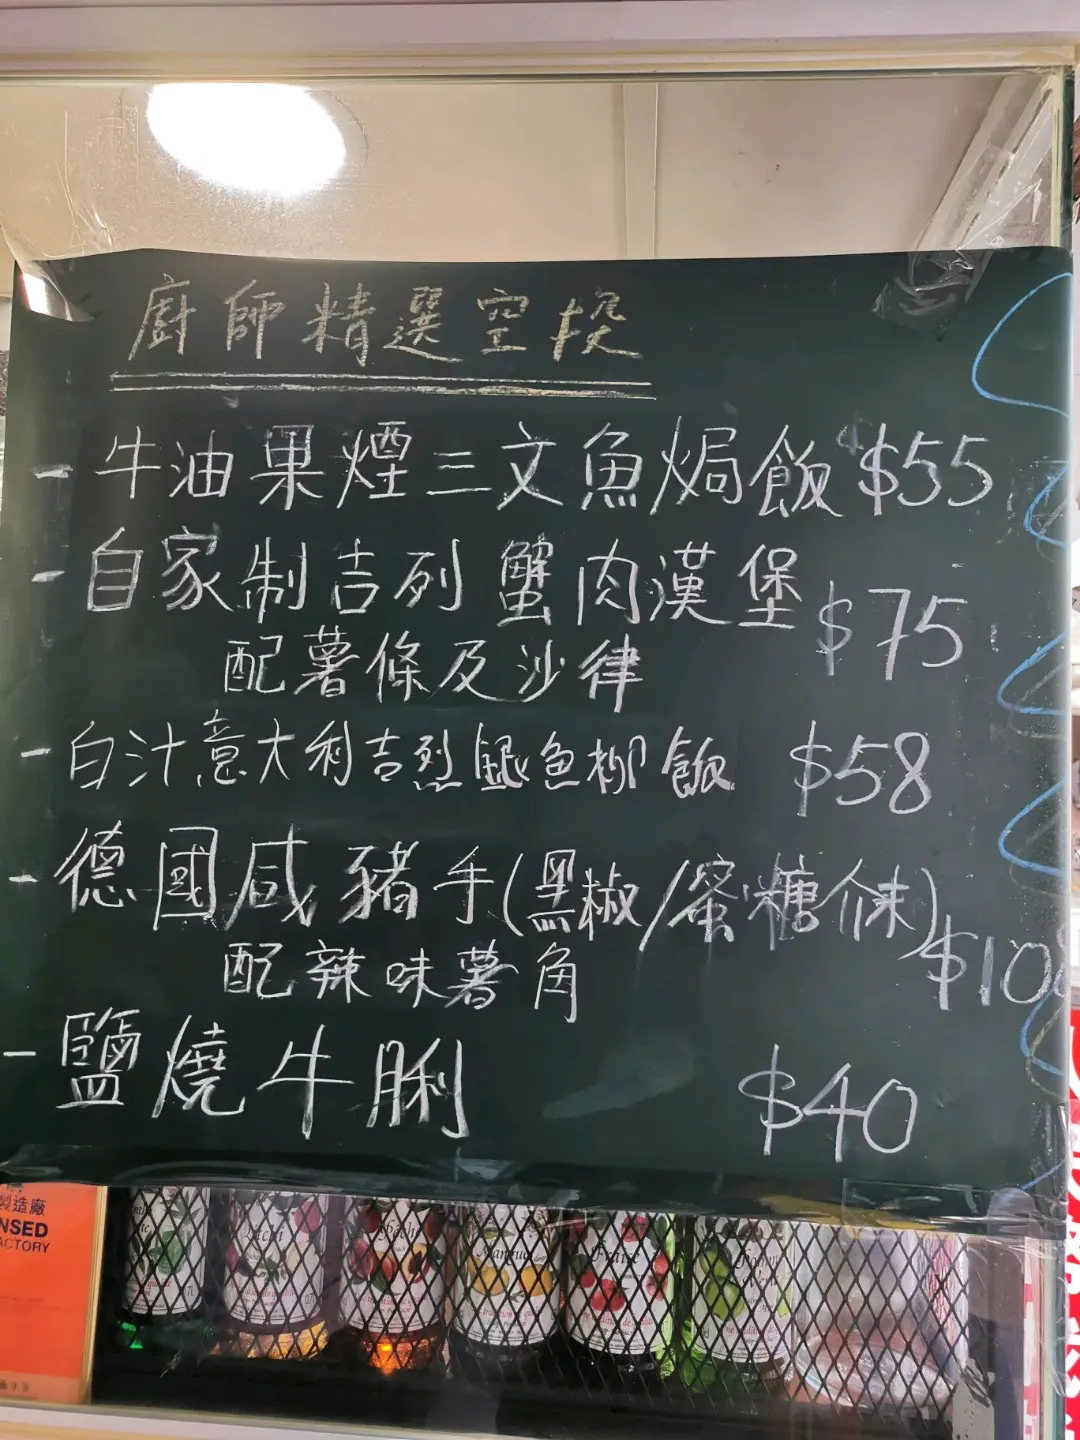 廚師精選空投
- 牛油果煙三文魚焗飯 $55
- 自家制吉列蟹肉漢堡 $75
配薯條及沙律
- 白汁意大利吉烈銀魚柳飯 $58
- 德國咸豬手(黑椒/蜜糖介末)
配辣味薯角
- 鹽燒牛脷 $40
製造廠
NSED
ACTORY
Fraise